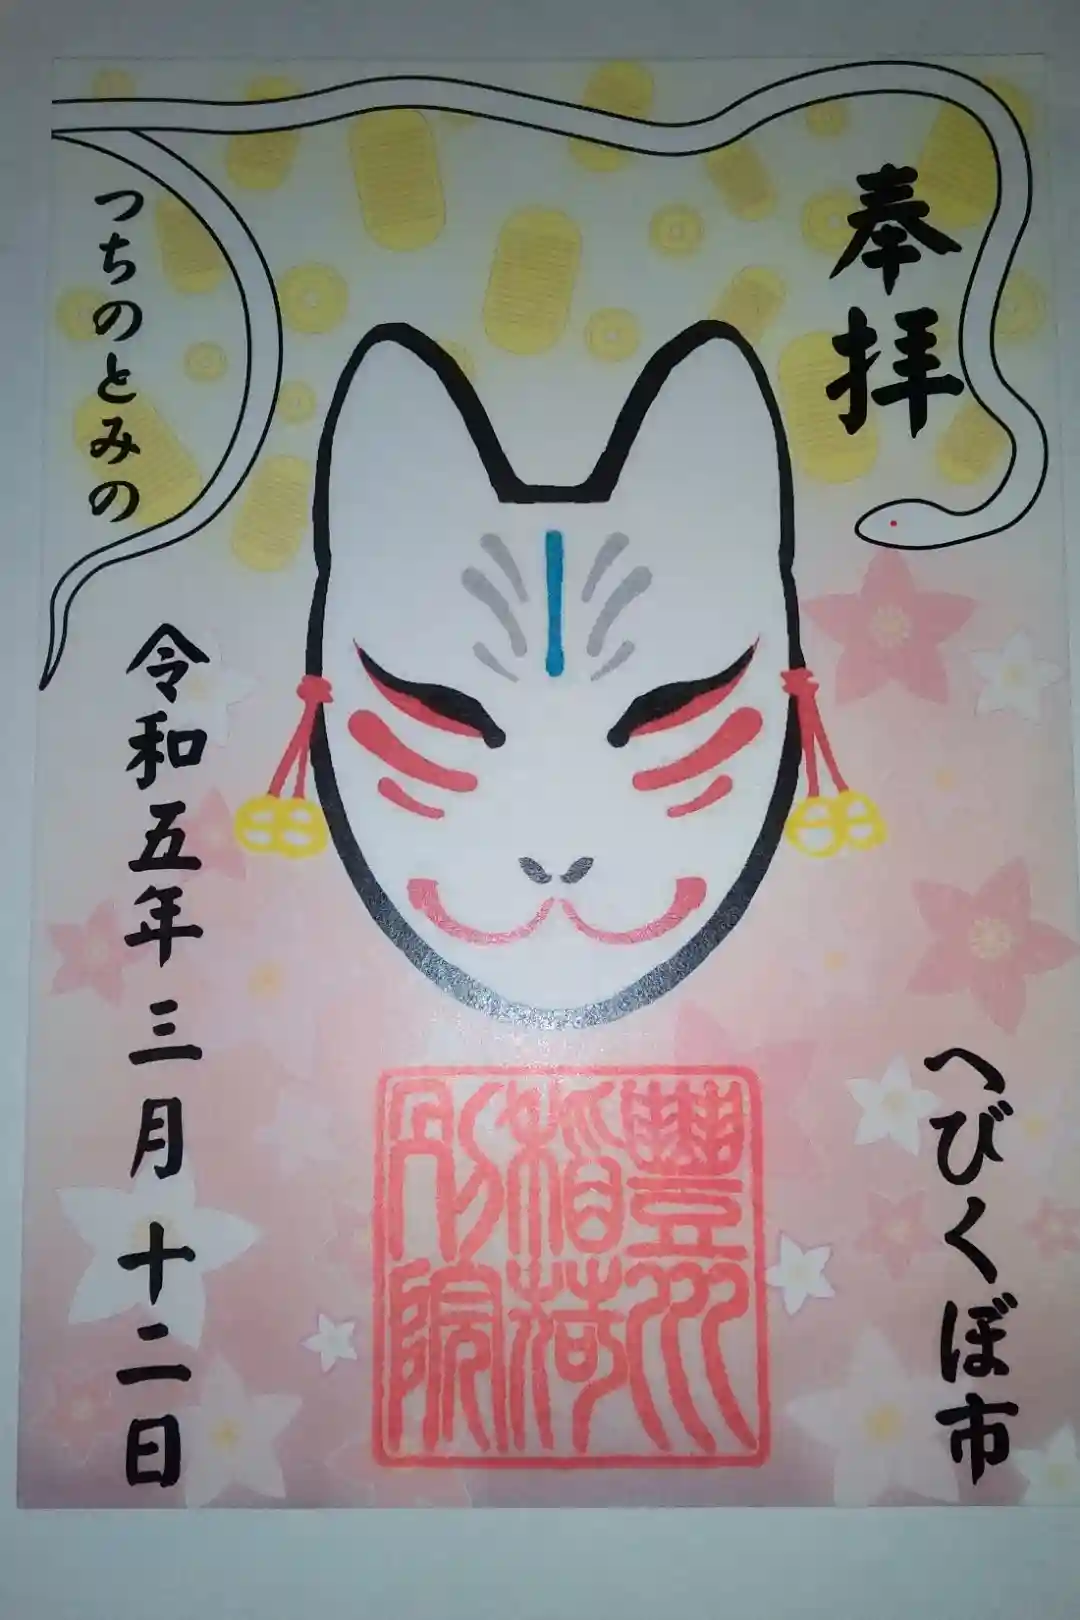 奉拝
へびくぼ市
豐川
稲荷
別院
つちのとみの
令和五年三月十二日